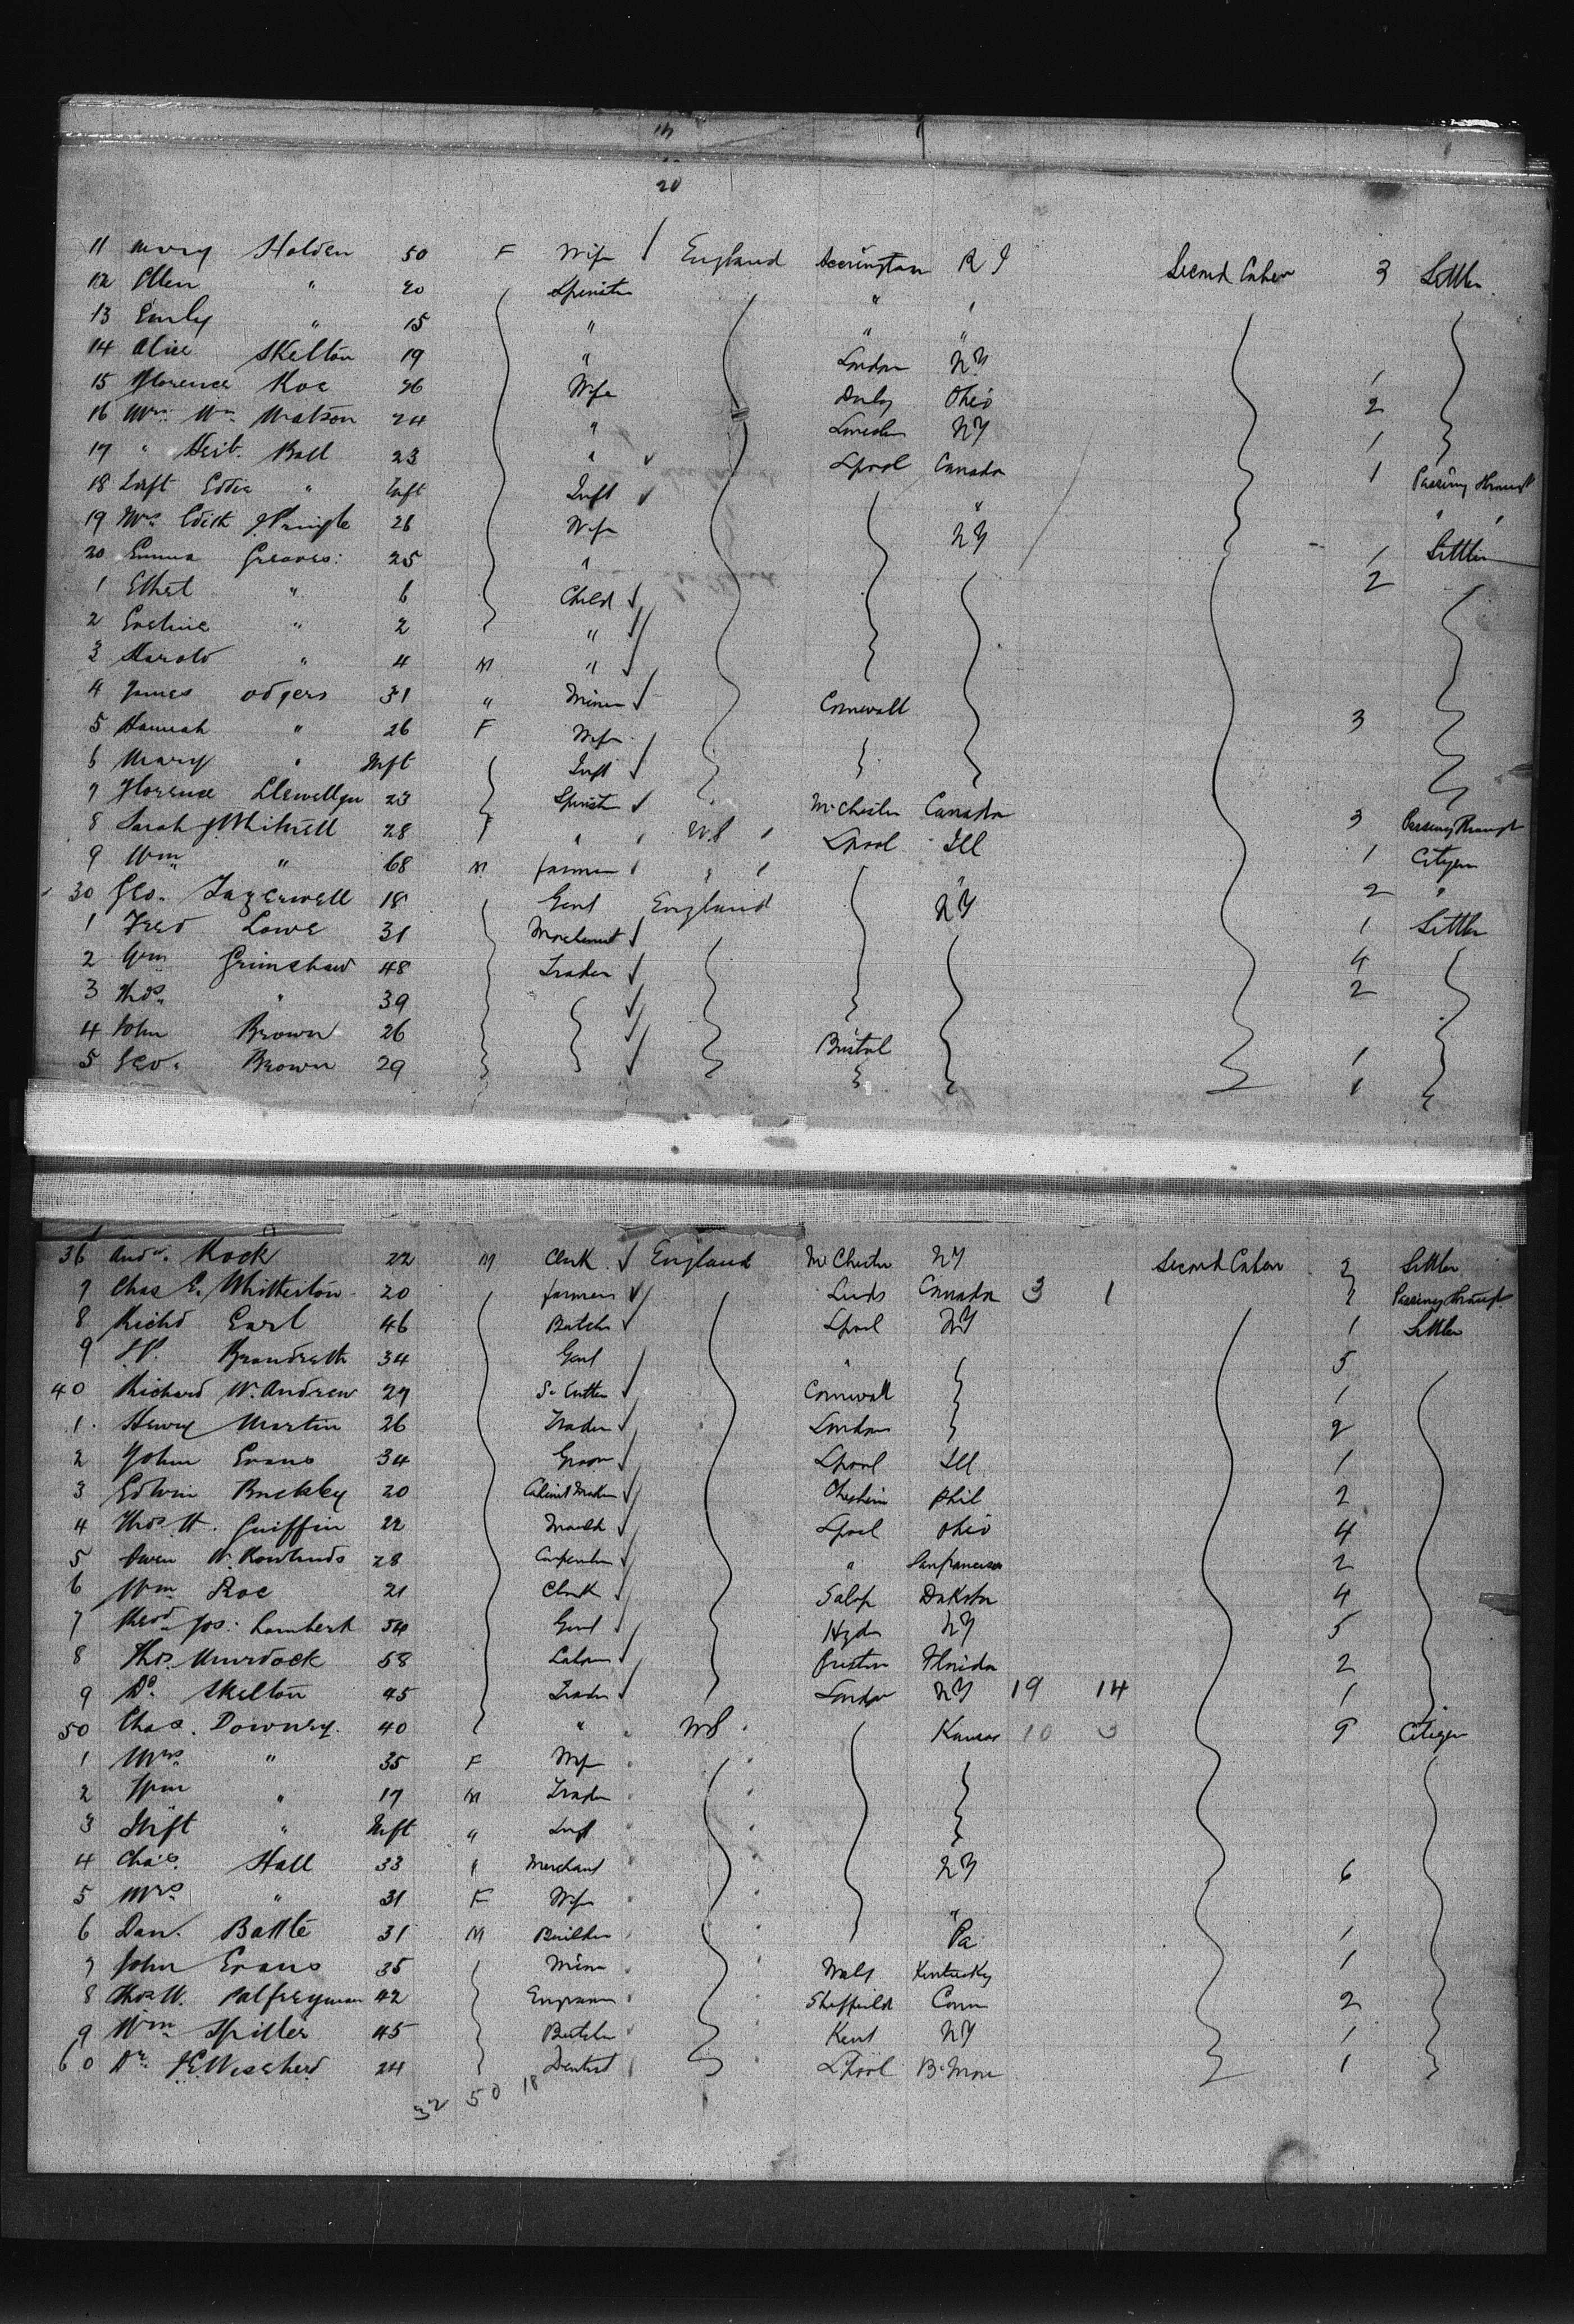 20
11 Mary Holden 50 F Wife England Accrington R I Second Cabin 3 Settler
12 Ellen " 20 Spinster "
13 Emily " 15 " " "
14 Alice Skelton 19 " London NY 1
15 Florence Roe 26 Wife Derby Ohio 2
16 Mrs Wm Watson 24 " Lincoln NY 1
17 " Herb. Ball 23 " Lpool Canada 1 Passing through
18 Inft Eddie " Inft Inft " "
19 Mrs Edith J Pringle 26 Wife NY 1 Settler
20 Emma Greaves 25 " 2
1 Ethel " 6 Child
2 " 2 "
3 Harold " 4 M "
4 James Odgers 31 " Miner Cornwall 3
5 Hannah " 26 F Wife
6 Mary " Inft Inft
7 Florence Llewellyn 23 Spinster McChester Canada 3 Passing through
8 Sarah J Whitnell 28 " US Lpool Ill 1 Citizen
9 Wm " 68 M farmer " " 2 "
30 Geo. Tazerwell 18 Gent England NY 1 Settler
1 Fred Lowe 31 Merchant 4
2 Wm Grimshaw 48 Trader 2
3 Thos " 39
4 John Brown 26 Bristol 1
5 Geo. Brown 29 1
36 Andw. Rock 22 M Clerk England McChester NY Second Cabin 2 Settler
7 Chas E. Whitterton 20 farmer Leeds Canada 3 1 2 Passing through
8 Richd Earl 46 Butcher Lpool NY 1 Settler
9 Brandreth 34 Gent " 5
40 Richard W. Andrew 29 S. Cutter Cornwall 1
1 Henry Martin 26 Trader London 2
2 John Evans 34 Groom Lpool Ill 1
3 Edwin Buckley 20 Cabinet Maker Cheshire Phil 2
4 Thos H. Griffin 22 Lpool Ohio 4
5 Owen W. Rowlands 28 Carpenter " Sanfrancisco 2
6 Wm Roe 21 Clerk Salop Dakota 4
7 Jos. Lambert 54 Gent Hyde NY 5
8 Thos. Murdock 58 Labour Preston Florida 2
9 Do. Skelton 45 Trader London NY 19 14 1
50 Chas. Downey 40 " US Kansas 10 3 9 Citizen
1 Mrs " 35 F Wife
2 Wm " 17 M Trader
3 Inft " Inft " Inft
4 Chas. Hall 33 " Merchant NY 6
5 Mrs " 31 F Wife "
6 Dan. Battle 31 M Builder Pa 1
7 John Evans 35 Miner Wales Kentucky 1
8 Thos W. Palfreyman 42 Sheffield Conn 2
9 Wm Spiller 45 Butcher Kent NY 1
60 Dr. 24 Dentist Lpool B.More 1
32 50 18